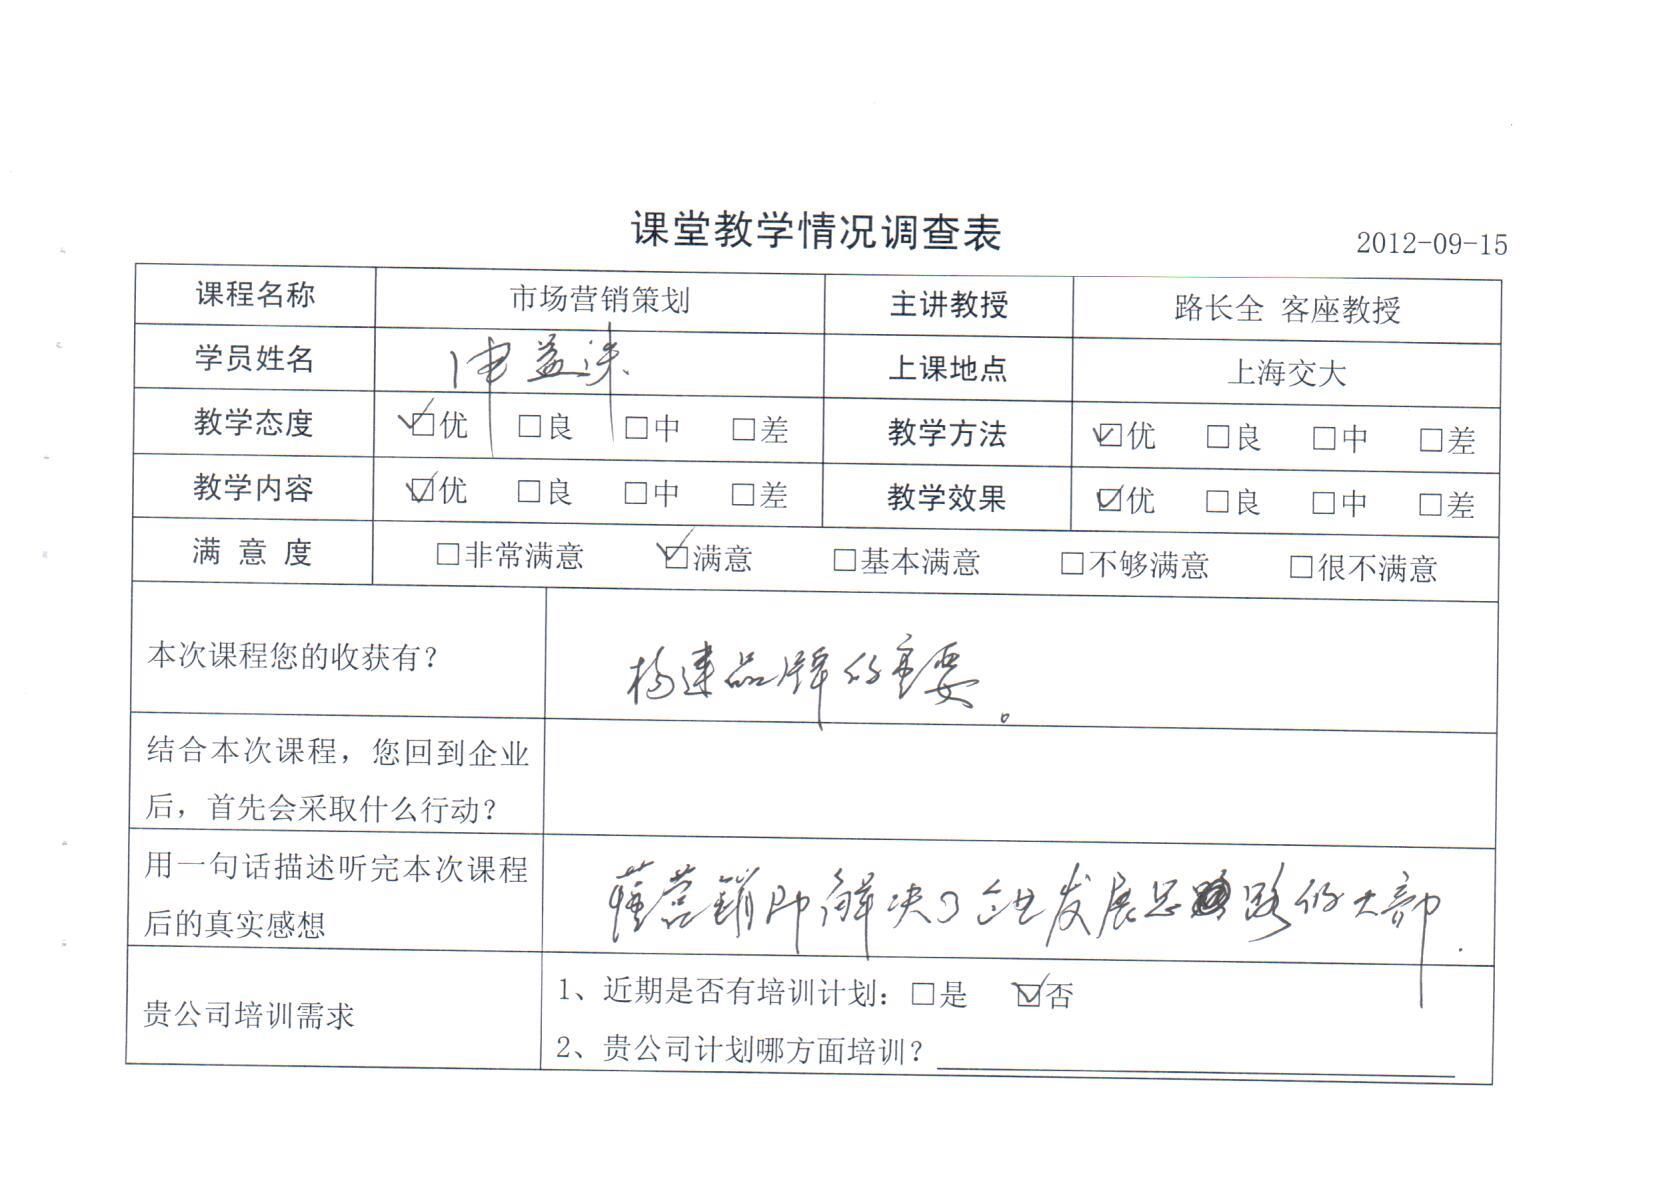 课堂教学情况调查表
2012-09-15
课程名称 市场营销策划 主讲教授 路长全 客座教授
学员姓名 益 上课地点 上海交大
教学态度 ☑优 □良 □中 □差 教学方法 ☑优 □良 □中 □差
教学内容 ☑优 □良 □中 □差 教学效果 ☑优 □良 □中 □差
满 意 度 □非常满意 ☑满意 □基本满意 □不够满意 □很不满意
本次课程您的收获有？ 构建品牌的重要。
结合本次课程，您回到企业
后，首先会采取什么行动？
用一句话描述听完本次课程
后的真实感想
懂营销即解决了企业发展思路的大部.
贵公司培训需求
1、近期是否有培训计划：□是 ☑否
2、贵公司计划哪方面培训？